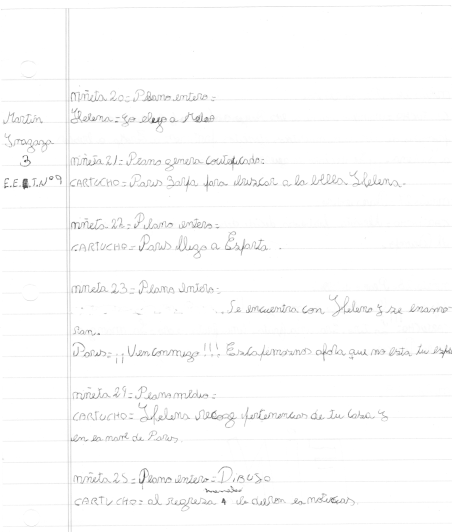 mñeta 20=Plano entero=
Helena=yo elego a Melao
Martin
3
E.E.S.T.Nº9
mñeta 21=Plano genera
CARTUCHO=Paris Zarpa para buzcar a la bella Helena.
mñeta 22=Plano entero=
CARTUCHO=Paris llego a Esparta.
mneta 23=Plano entero=
Se encuentra con Helena y se enamo-
ran.
Paris=¡¡Ven conmigo!!! Escapemonos afora que no esta tu
mñeta 24=Plano medio=
CARTUCHO=Helena recoge pertenencias de tu casa y
en la nave de Paris.
mñeta 25=Plano entero=DIBUJO
menelao
CARTUCHO=al regresa a le dieron la noticias.